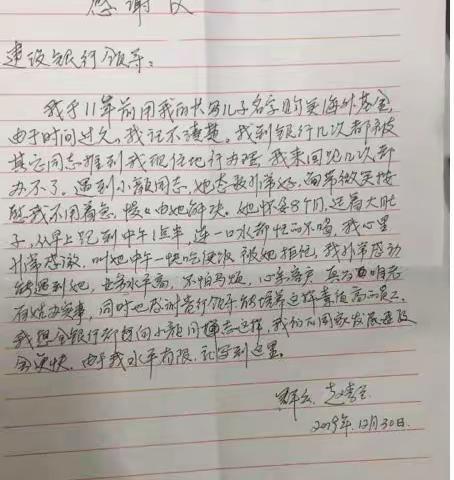 感谢仪
建设银行领导:
我于11年前用我的大女儿子名字购买海外基金,
由于时间过久,我记不清楚。我到银行几次都被
其它同志推到我原住地行办理,我来回跑几次都
办不了。遇到小颜同志,她态度非常好,面带微笑按
我不用着急,慢々由她解决。她怀孕8个月,还有大肚
子,从早上跑到中午1点半,连一口水都忙的不喝,我心里
非常感激,叫她中午一快吃便饭被她拒绝,我非常感动
能遇到她,业务水平高,不怕麻烦,心非常,真为
百姓办实事,同时也感谢贵行领导能培养这样素质高的员工。
我想全银行都想向小颜同志这样,我们的国家发展建设
会更快。由于我水平有限,让写到这里。
群众:赵
2019年12月30日.